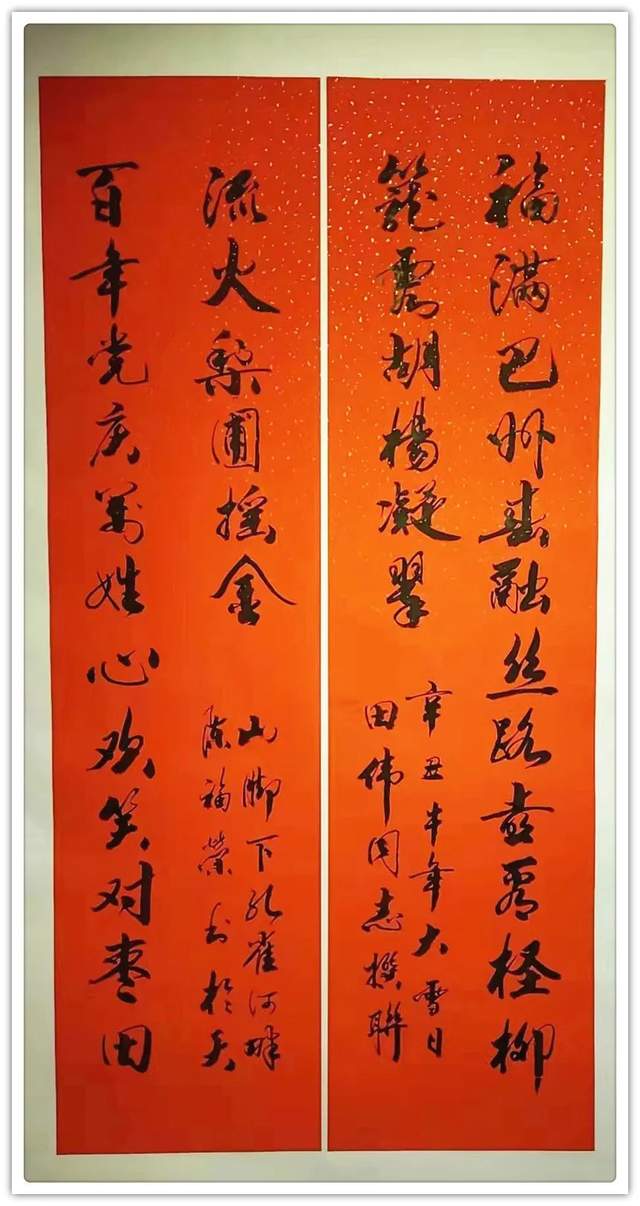 福满巴州春融丝路喜看柽柳
籠胡杨凝翠
辛丑牛年大雪日
田伟同志撰聯
百年党庆萬姓心欢笑对枣田
流火梨圃摇金
陈福榮书於天
山脚下孔雀河畔